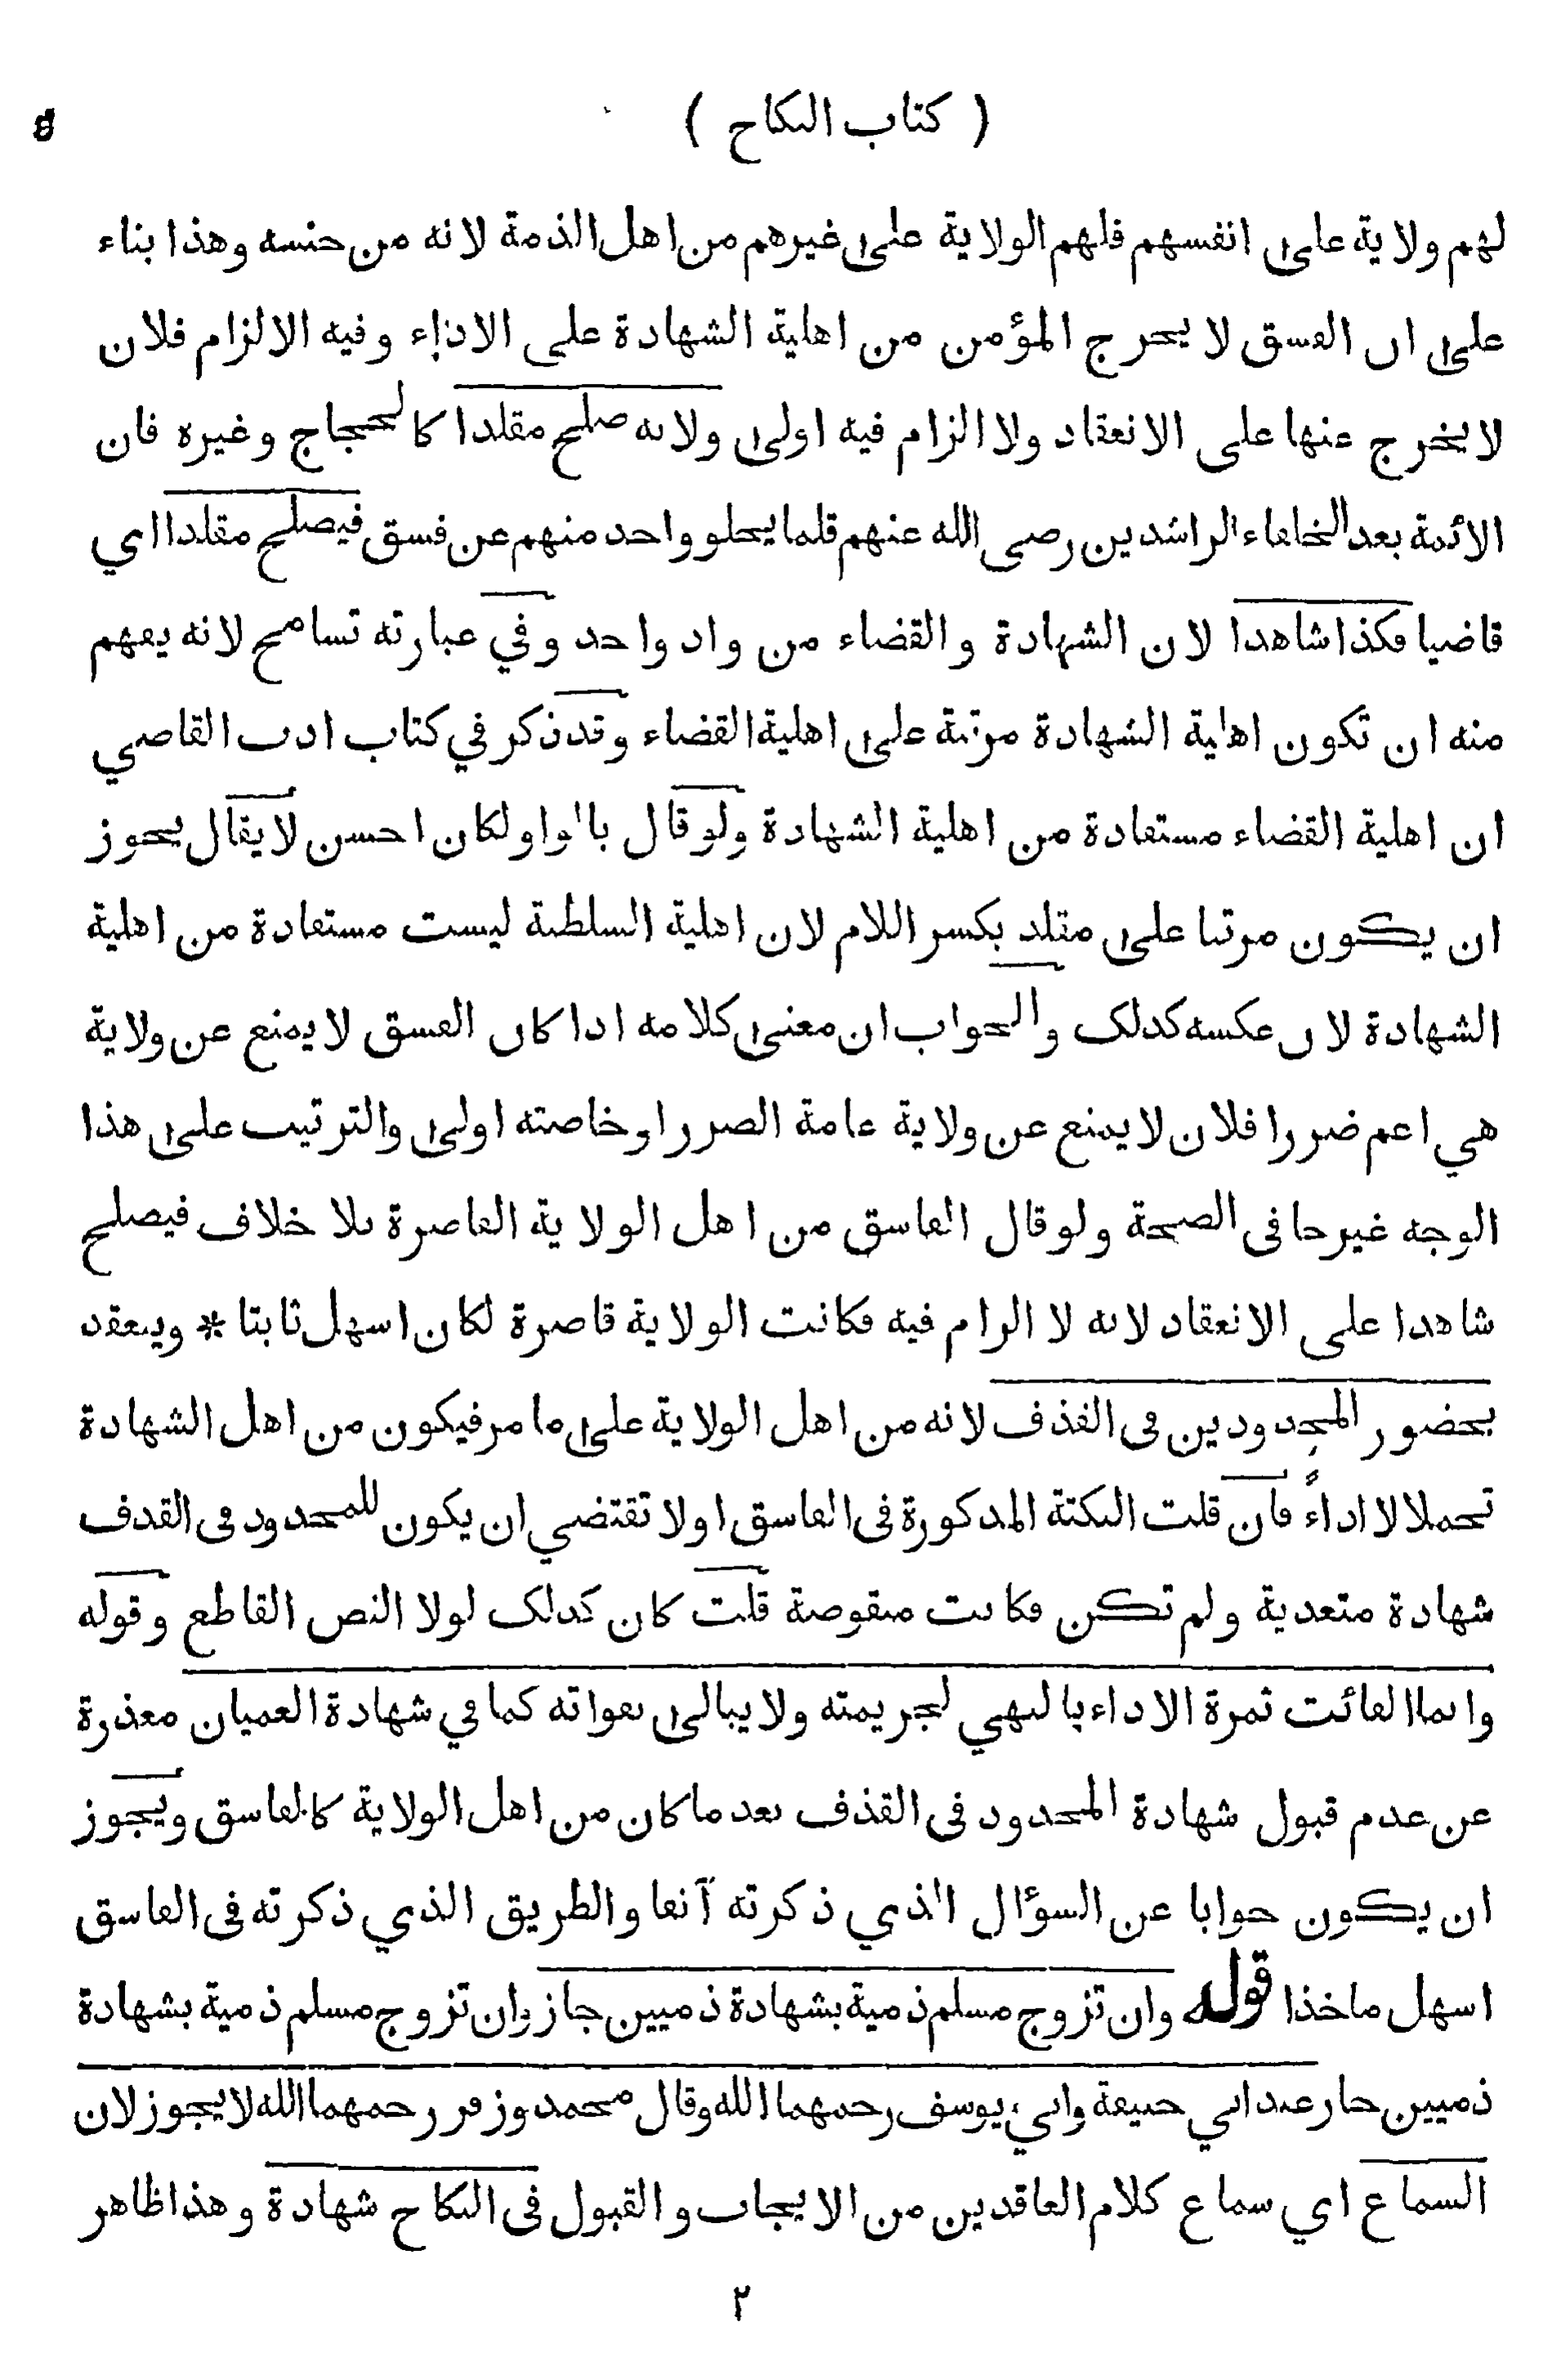 ( كتاب النكاح )
لهم ولاية على انفسهم فلهم الولاية على غيرهم من اهل الذمة لانه من جنسه وهذا بناء
على ان الفسق لا يخرج المؤمن من اهلية الشهادة على الاداء وفيه الالزام فلان
لا يخرج عنها على الانعقاد ولا الزام فيه اولى ولانه صلح مقلدا كالحجاج وغيره فان
الائمة بعد الخلفاء الراشدين رضي الله عنهم قلما يخلو واحد منهم عن فسق فيصلح مقلدا اي
قاضيا فكذا شاهدا لان الشهادة والقضاء من واد واحد وفي عبارته تسامح لانه يفهم
منه ان تكون اهلية الشهادة مرتبة على اهلية القضاء وقد ذكر في كتاب ادب القاضي
ان اهلية القضاء مستفادة من اهلية الشهادة ولو قال بالواو لكان احسن لا يقال يجوز
ان يكون مرتبا على مقلد بكسر اللام لان اهلية السلطنة ليست مستفادة من اهلية
الشهادة لان عكسه كذلك والجواب ان معنى كلامه اذا كان الفسق لا يمنع عن ولاية
هي اعم ضررا فلان لا يمنع عن ولاية عامة الضرر او خاصته اولى والترتيب على هذا
الوجه غير خافى الصحة ولو قال الفاسق من اهل الولاية القاصرة بلا خلاف فيصلح
شاهدا على الانعقاد لانه لا الزام فيه فكانت الولاية قاصرة لكان اسهل ثابتا * وينعقد
بحضور المحدودين فى القذف لانه من اهل الولاية على ما مر فيكون من اهل الشهادة
تحملا لا اداءً فان قلت النكتة المذكورة فى الفاسق اولا تقتضي ان يكون للمحدود فى القذف
شهادة متعدية ولم تكن فكانت منقوضة قلت كان كذلك لولا النص القاطع وقوله
وانما الفائت ثمرة الاداء بالنهي لجريمته ولا يبالى بفواته كما في شهادة العميان معذرة
عن عدم قبول شهادة المحدود فى القذف بعد ما كان من اهل الولاية كالفاسق ويجوز
ان يكون جوابا عن السؤال الذي ذكرته آنفا والطريق الذي ذكرته فى الفاسق
اسهل ماخذا قوله وان تزوج مسلم ذمية بشهادة ذميين جاز وان تزوج مسلم ذمية بشهادة
ذميين جاز عند ابي حنيفة وابي يوسف رحمهما الله وقال محمد وزفر رحمهما الله لا يجوز لان
السماع اي سماع كلام العاقدين من الايجاب والقبول فى النكاح شهادة وهذا ظاهر
٢